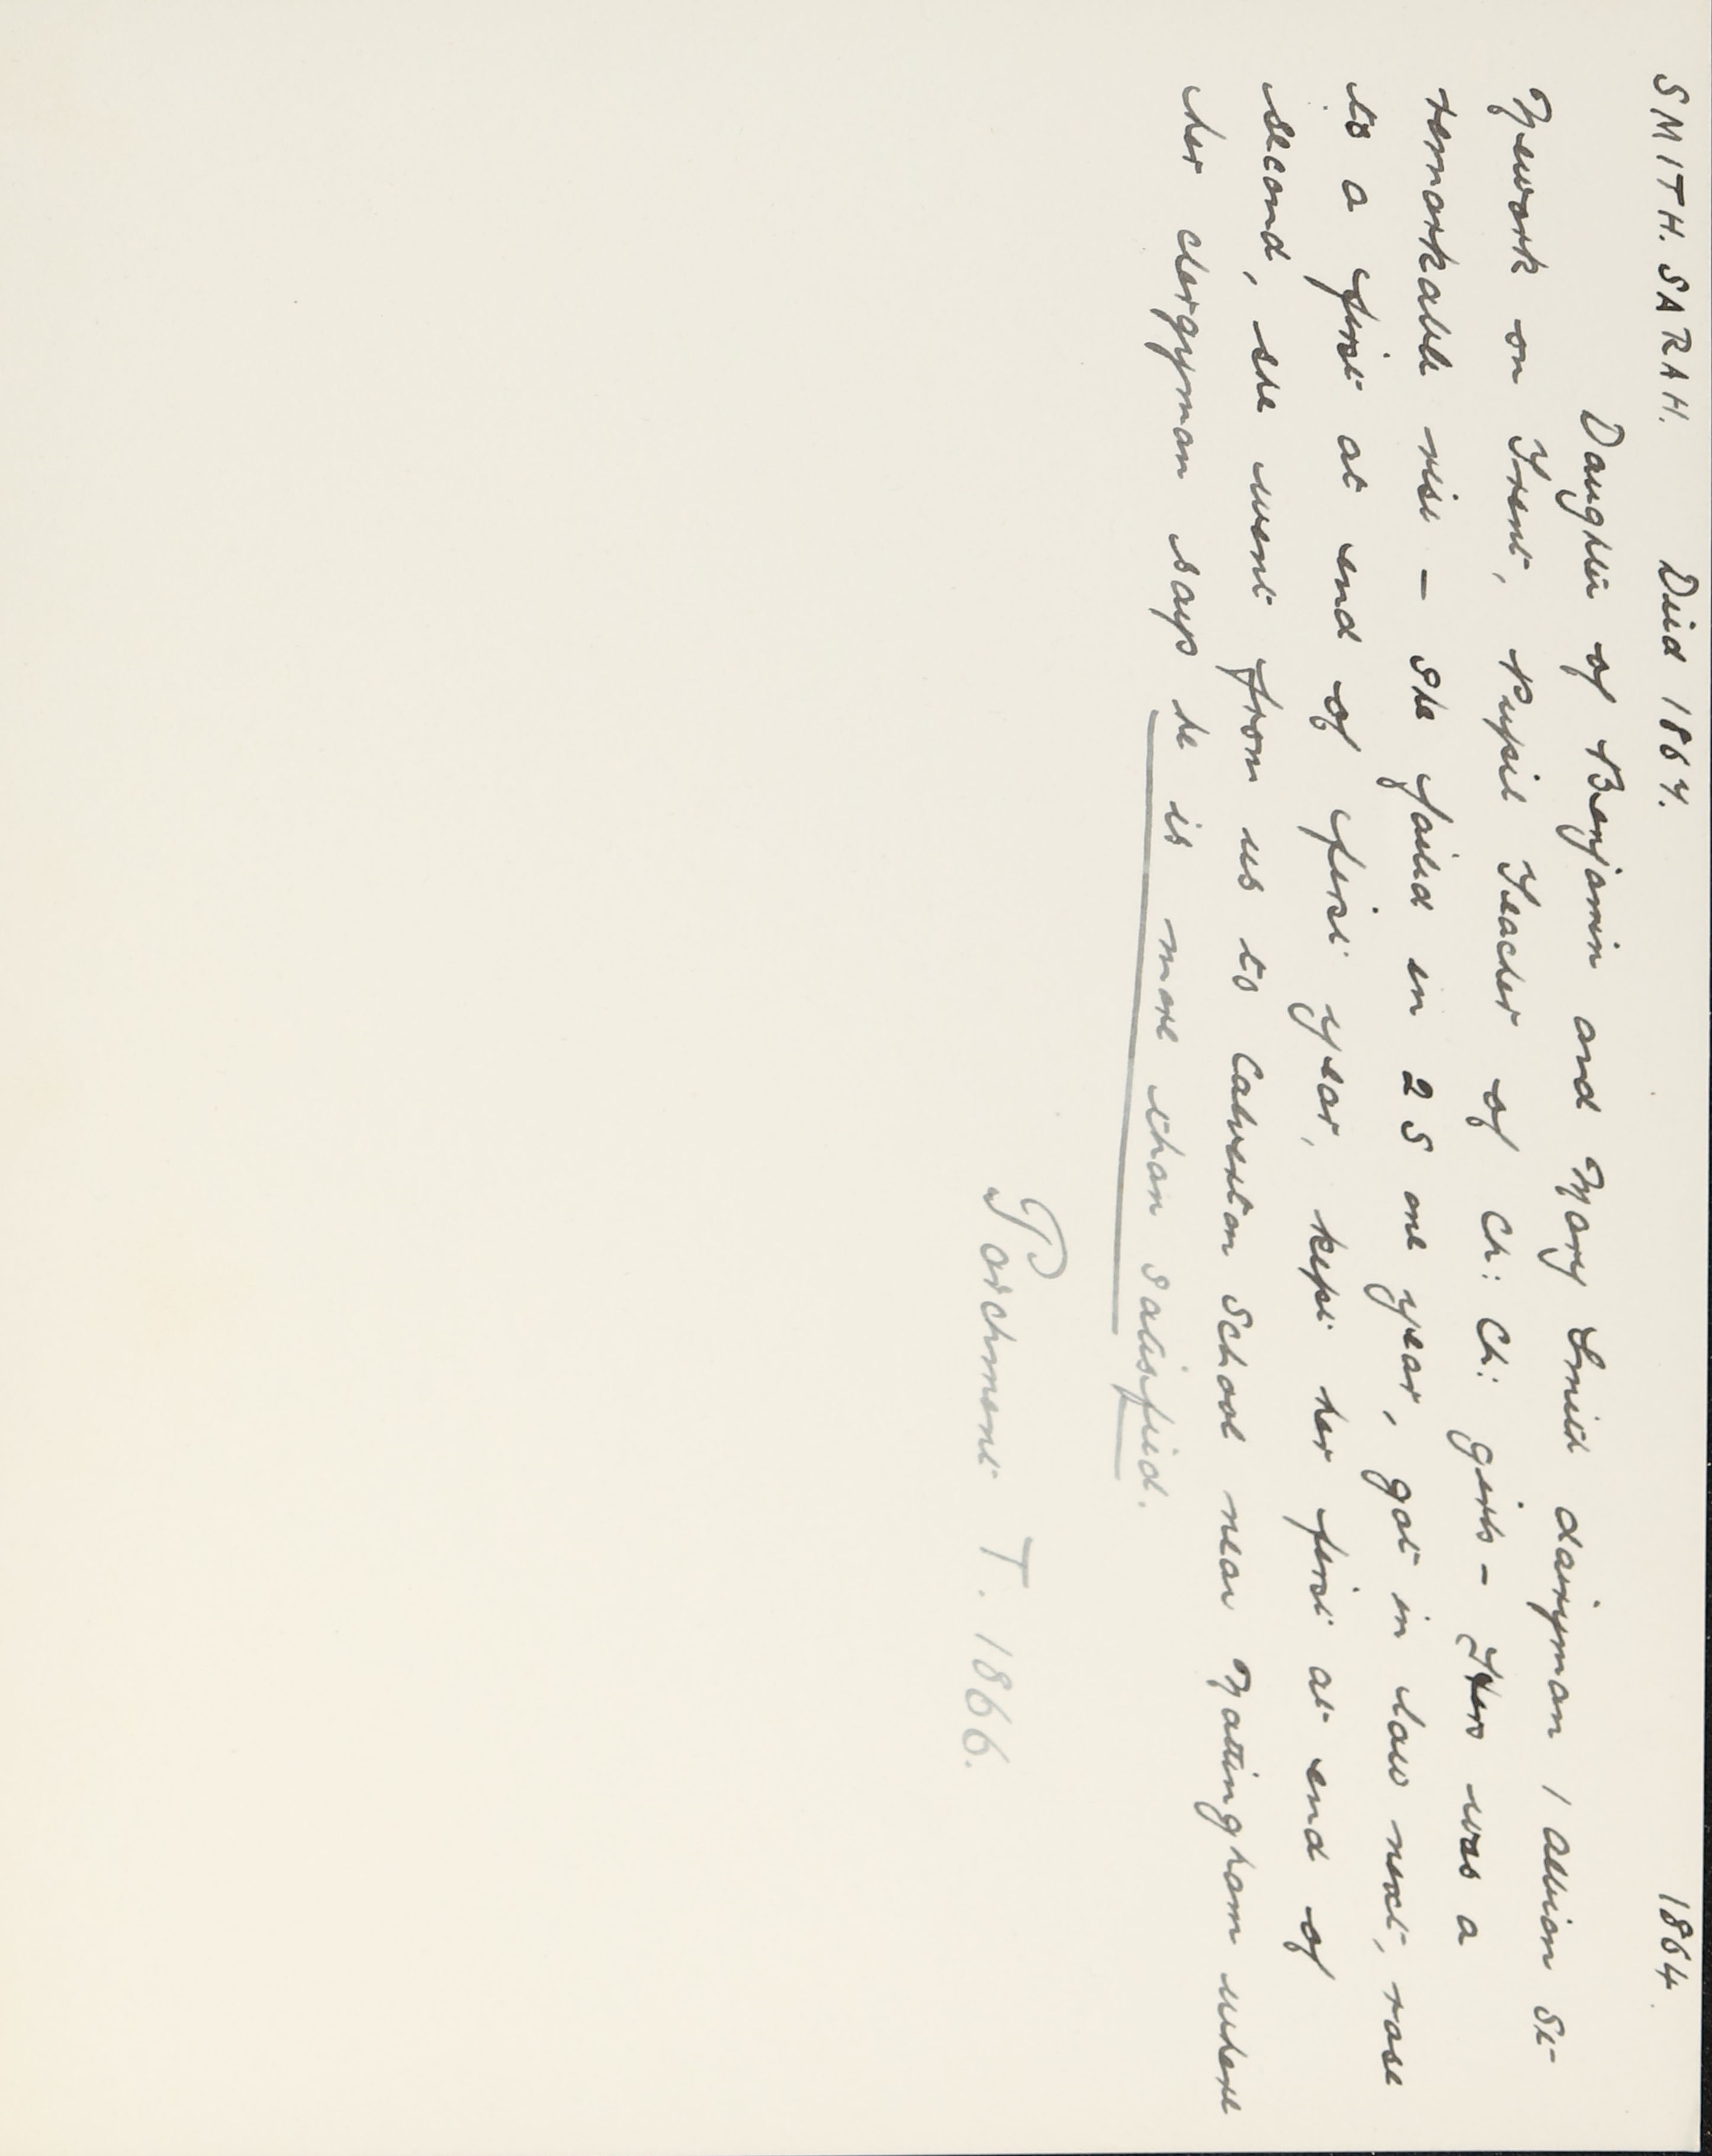 SMITH. SARAH. Died 1864. 1864.
Daughter of Benjamin and Mary Smith dairyman 1 Albion St-
Newark on Trent, Pupil Teacher of Ch: Ch: girls - Hers was a
remarkable rise - She failed in 2 S one year, got in low next, rose
to a first at end of first year, kept her first at end of
second, she went from us to Calverton School near Nottingham where
her clergyman says he is more than satisfied.
Parchment T. 1866.